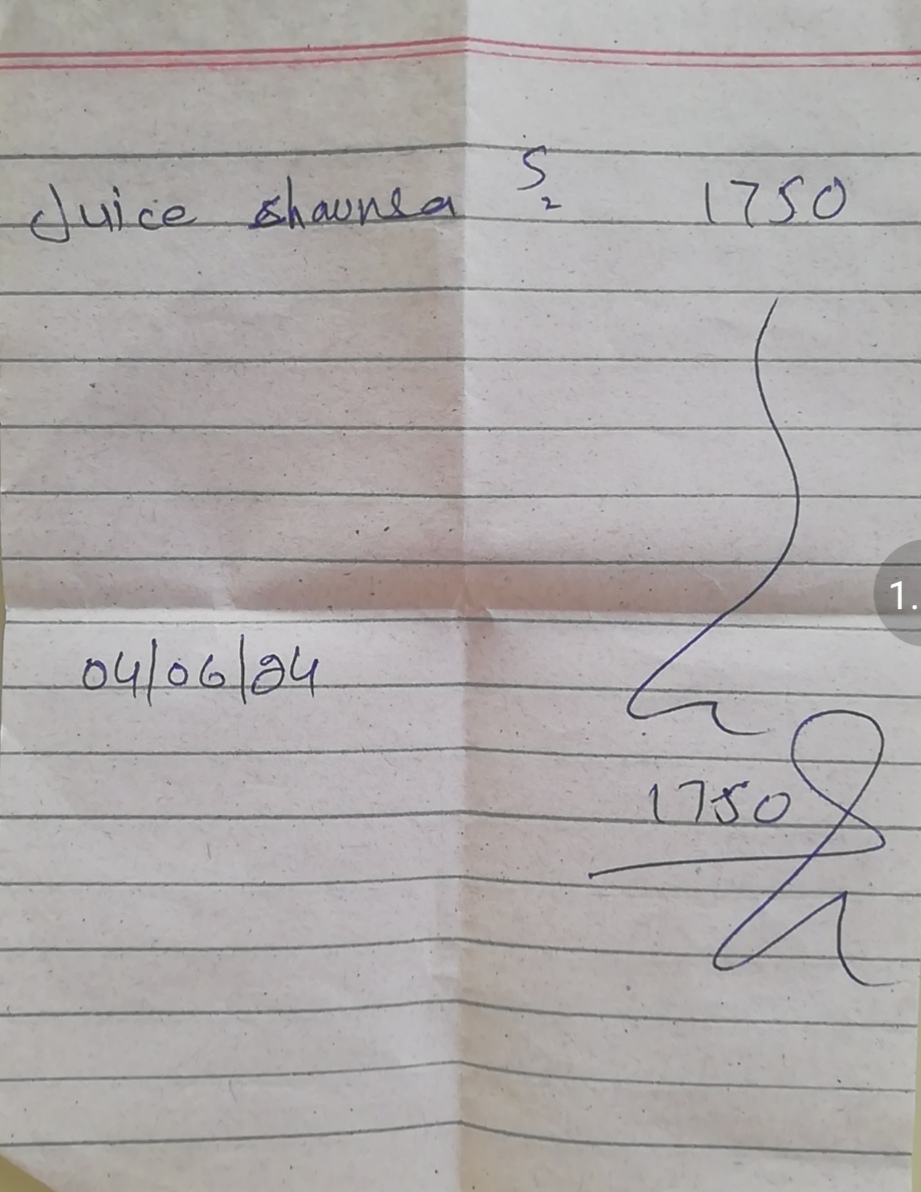 Juice shaunsa 5 2 1750
04/06/24
1750
1.